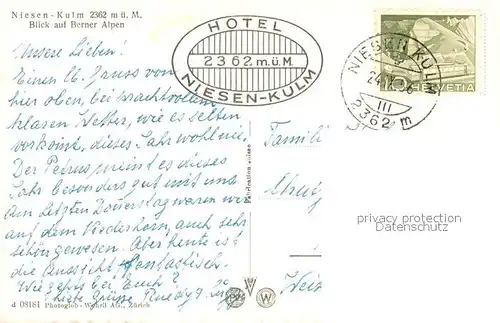 Niesen-Kulm 2362 m ü. M.
Blick auf Berner Alpen
HOTEL
2362 m.ü.M
NIESEN-KULM
NIESEN KULM
III
2362 m
HELVETIA
Unsere Lieben!
Einen lb. Gruss von
hier oben, bei prachtvollem
klaren Wetter, wie es selten
vorkommt, dieses Jahr wohl nie!
Der Petrus meint es dieses
Jahr besonders gut mit uns
Am letzten Donerstag waren wir
auf dem Niederhorn, auch sehr
schön gewesen. Aber heute ist
die Aussicht fantastisch.
Wie gehts bei Euch?
Liebe Grüsse Ruedy
Familie
Fabrication suisse
privacy protection
Datenschutz
d 08181 Photoglob-Wehrli AG., Zürich